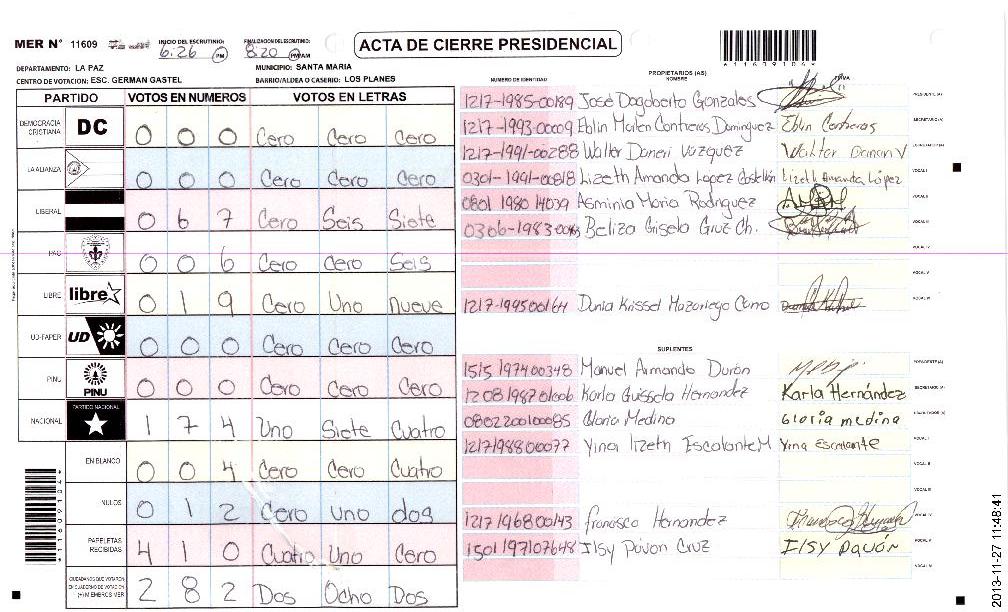 MER N° 11609
INICIO DEL ESCRUTINIO: 6:26 PM
FINALIZACION DEL ESCRUTINIO: 8:20 PM AM
ACTA DE CIERRE PRESIDENCIAL
*1160910 4*
DEPARTAMENTO: LA PAZ MUNICIPIO: SANTA MARIA
CENTRO DE VOTACION: ESC. GERMAN GASTEL BARRIO/ALDEA O CASERIO: LOS PLANES
PARTIDO VOTOS EN NUMEROS VOTOS EN LETRAS
DEMOCRACIA CRISTIANA DC 0 0 0 Cero Cero Cero
LA ALIANZA 0 0 0 Cero Cero Cero
LIBERAL 0 6 7 Cero Seis Siete
PAC 0 0 6 Cero Cero Seis
LIBRE libre 0 1 9 Cero Uno nueve
UD-FAPER UD 0 0 0 Cero Cero Cero
PINU PINU 0 0 0 Cero Cero Cero
NACIONAL PARTIDO NACIONAL 1 7 4 Uno Siete Cuatro
EN BLANCO 0 0 4 Cero Cero Cuatro
NULOS 0 1 2 Cero uno dos
PAPELETAS RECIBIDAS 4 1 0 Cuatro Uno Cero
CIUDADANOS QUE VOTARON EN CUADERNO DE VOTACION (+) MIEMBROS MER 2 8 2 Dos Ocho Dos
PROPIETARIOS (AS)
NUMERO DE IDENTIDAD NOMBRE FIRMA
1217-1985-00189 José Dagoberto Gonzales PRESIDENTE(A)
1217-1993-00009 Eblin Marlen Contreras Dominguez Eblin Contreras SECRETARIO(A)
1217-1991-00288 Walter Daneri Vazquez Walter Danari V
0301-1991-00818 Lizeth Amanda Lopez Castellón Lizeth Amanda López VOCAL I
0801 1980 14039 Asminia Maria Rodriguez VOCAL II
0306-1983-00 Beliza Gisela Cruz Ch. VOCAL III
VOCAL IV
VOCAL V
1217-199500164 Dunia Krissel Mazariego Cano VOCAL VI
SUPLENTES
1515 197400348 Manuel Armando Durón PRESIDENTE(A)
1208198701006 Karla Guissela Hernandez Karla Hernández SECRETARIO(A)
0802200100085 Gloria Medina Gloria medina
1217198800077 Yina lizeth Escalante M Yina Escalante VOCAL I
VOCAL II
VOCAL III
1217196800143 francisco Hernandez VOCAL IV
1501197107648 Ilsy Pavon Cruz Ilsy pavón VOCAL V
VOCAL VI
2013-11-27 11:48:41